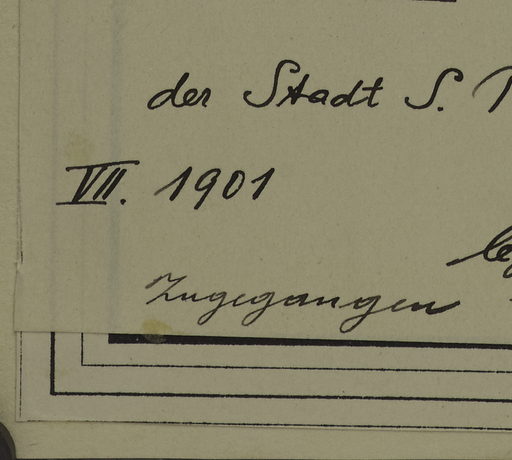 der Stadt S.
VII. 1901
Zugegangen